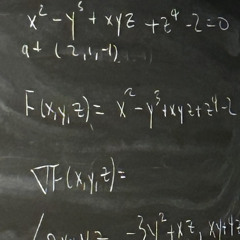 x² - y³ + xyz + z⁴ - 2 = 0
at (2, 1, -1)
F(x,y,z) = x² - y³ + xyz + z⁴ - 2
∇F(x,y,z) =
-3y² + xz, xy+4z